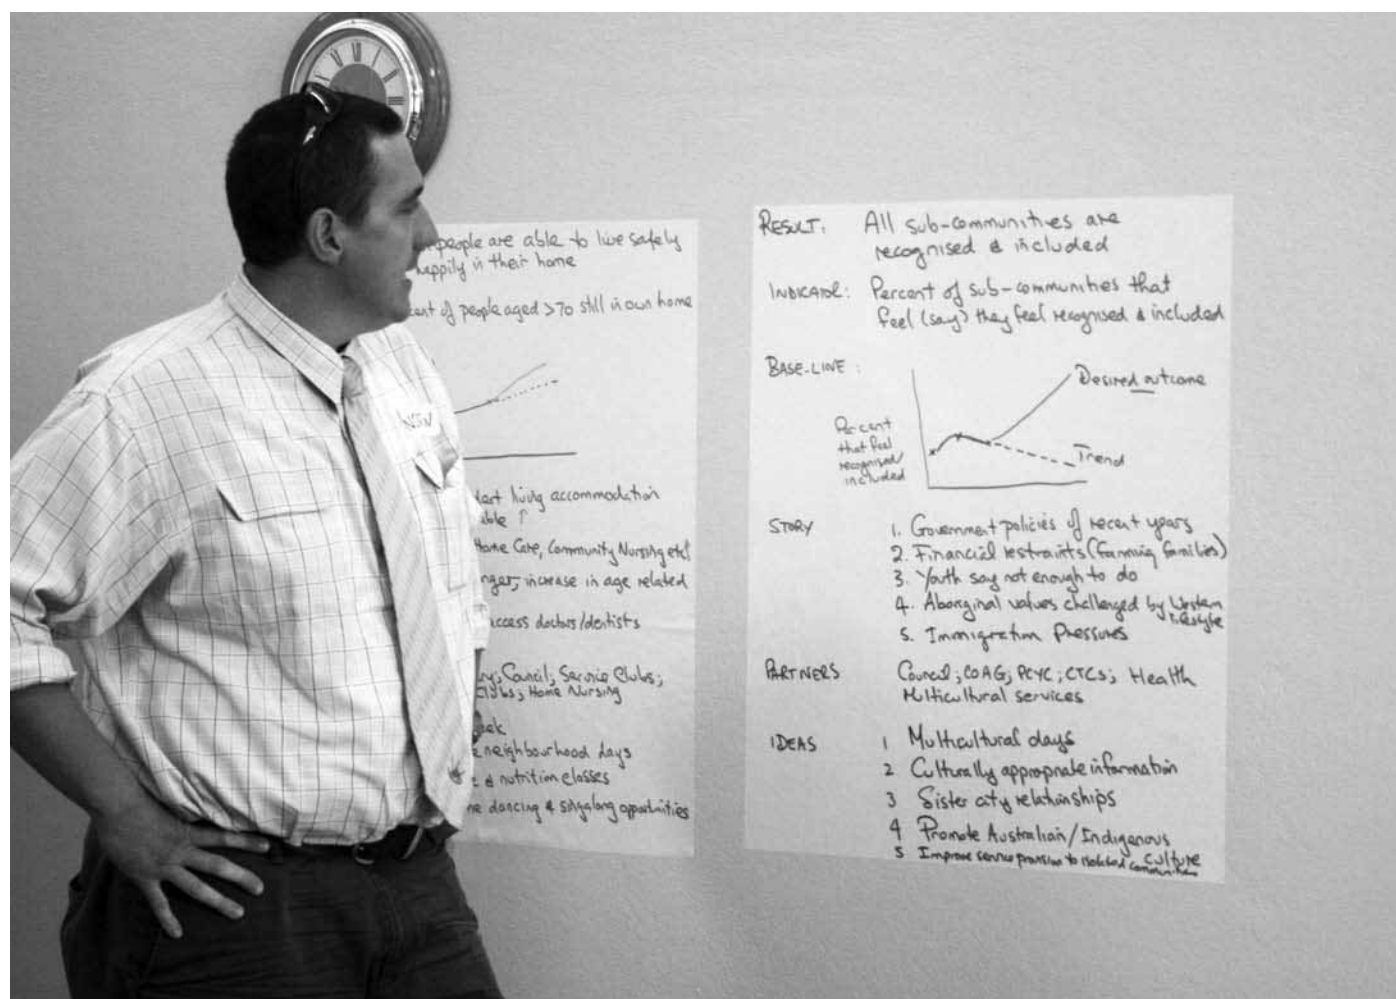 people are able to live safely
happily in their home
cent of people aged >70 still in own home
living accommodation
able ↑
Home Care, Community Nursing etc↑
increase in age related
access doctors/dentists
Council; Service Clubs;
Clubs; Home Nursing
neighbourhood days
& nutrition classes
dancing & singalong opportunities
RESULT: All sub-communities are
recognised & included
INDICATOR: Percent of sub-communities that
feel (say) they feel recognised & included
BASE-LINE:
Desired outcome
Percent
that feel
recognised/
included
Trend
STORY 1. Government policies of recent years
2. Financial restraints (farming families)
3. Youth say not enough to do
4. Aboriginal values challenged by Western
lifestyle
5. Immigration Pressures
PARTNERS Council; COAG; PCYC; CTCs; Health
Multicultural services
IDEAS 1 Multicultural days
2 Culturally appropriate information
3 Sister city relationships
4 Promote Australian/Indigenous
culture
5 Improve service provision to isolated communities